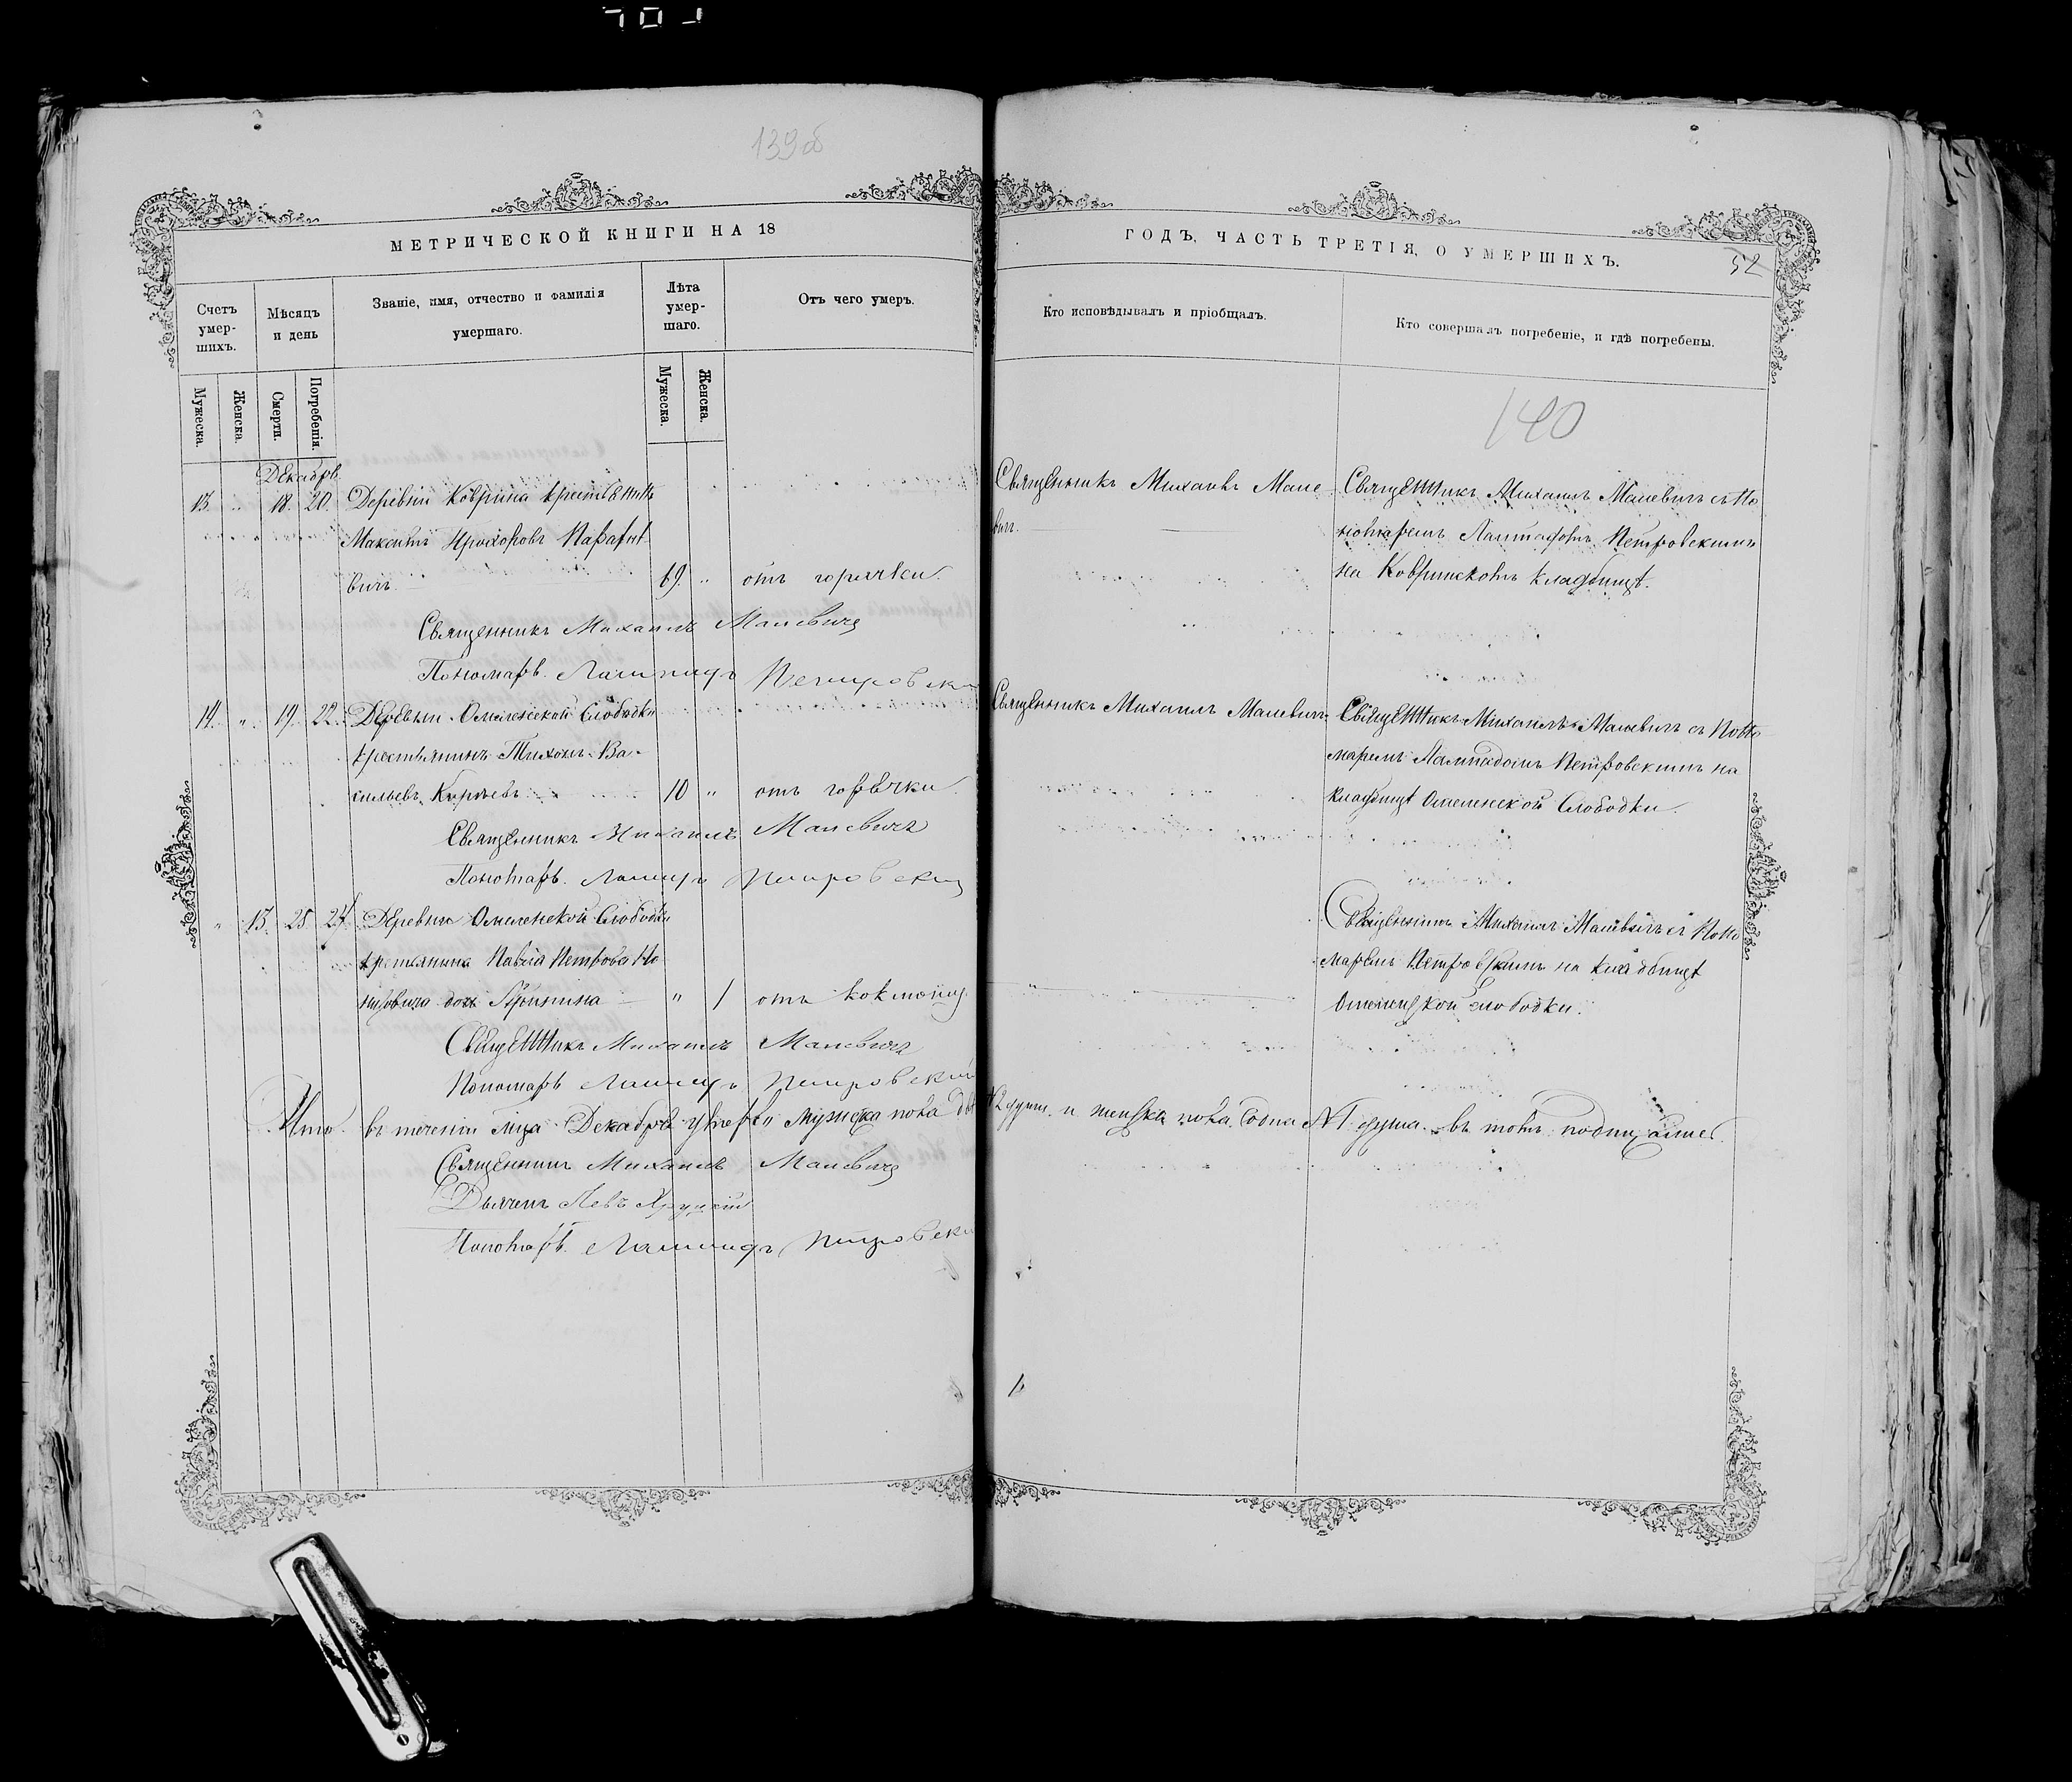 139об
МЕТРИЧЕСКОЙ КНИГИ НА 18
Счетъ умер-шихъ.
Мѣсяцъ и день
Званіе, имя, отчество и фамилія умершаго.
Лѣта умер-шаго.
Отъ чего умеръ.
Мужеска.
Женска.
Смерти.
Погребенія.
Мужеска.
Женска.
Декабрь
13. " 18. 20. Деревни Коврина крестьянинъ
Максимъ Прохоровъ
вичъ 69. " отъ горячки.
Священникъ Михаилъ Малевичъ
Пономарь Лампадъ Петровскій
14. " 19. 22. Деревни Омеленской Слободки
крестьянинъ Тихонъ Ва-
сильевъ 10 " отъ горячки.
Священникъ Михаилъ Малевичъ
Пономарь Лампадъ Петровскій
" 13. 25. 27. Деревни Омеленской Слободки
крестьянина Павла Петрова
дочь " 1 отъ коклюшу.
Священникъ Михаилъ Малевичъ
Пономарь Лампадъ Петровскій
Итого въ теченіи мца Декабря мужеска пола
Священникъ Михаилъ Малевичъ
Дьячекъ Левъ
Пономарь Лампадъ Петровскій
ГОДЪ, ЧАСТЬ ТРЕТІЯ, О УМЕРШИХЪ.
52
Кто исповѣдывалъ и пріобщалъ.
Кто совершалъ погребеніе, и гдѣ погребены.
140
Священникъ Михаилъ Мале-
вичъ.
Священникъ Михаилъ Малевичъ съ По-
номаремъ Лампадомъ Петровскимъ
на Ковринскомъ кладбищѣ.
Священникъ Михаилъ Малевичъ
Священникъ Михаилъ Малевичъ съ Поно-
маремъ Лампадомъ Петровскимъ на
кладбищѣ Омеленской Слободки.
Священникъ Михаилъ Малевичъ съ Поно-
маремъ Петровскимъ на кладбищѣ
Омеленской слободки.
2 души. и женска пола одна №1 душа. въ томъ подпишемся.